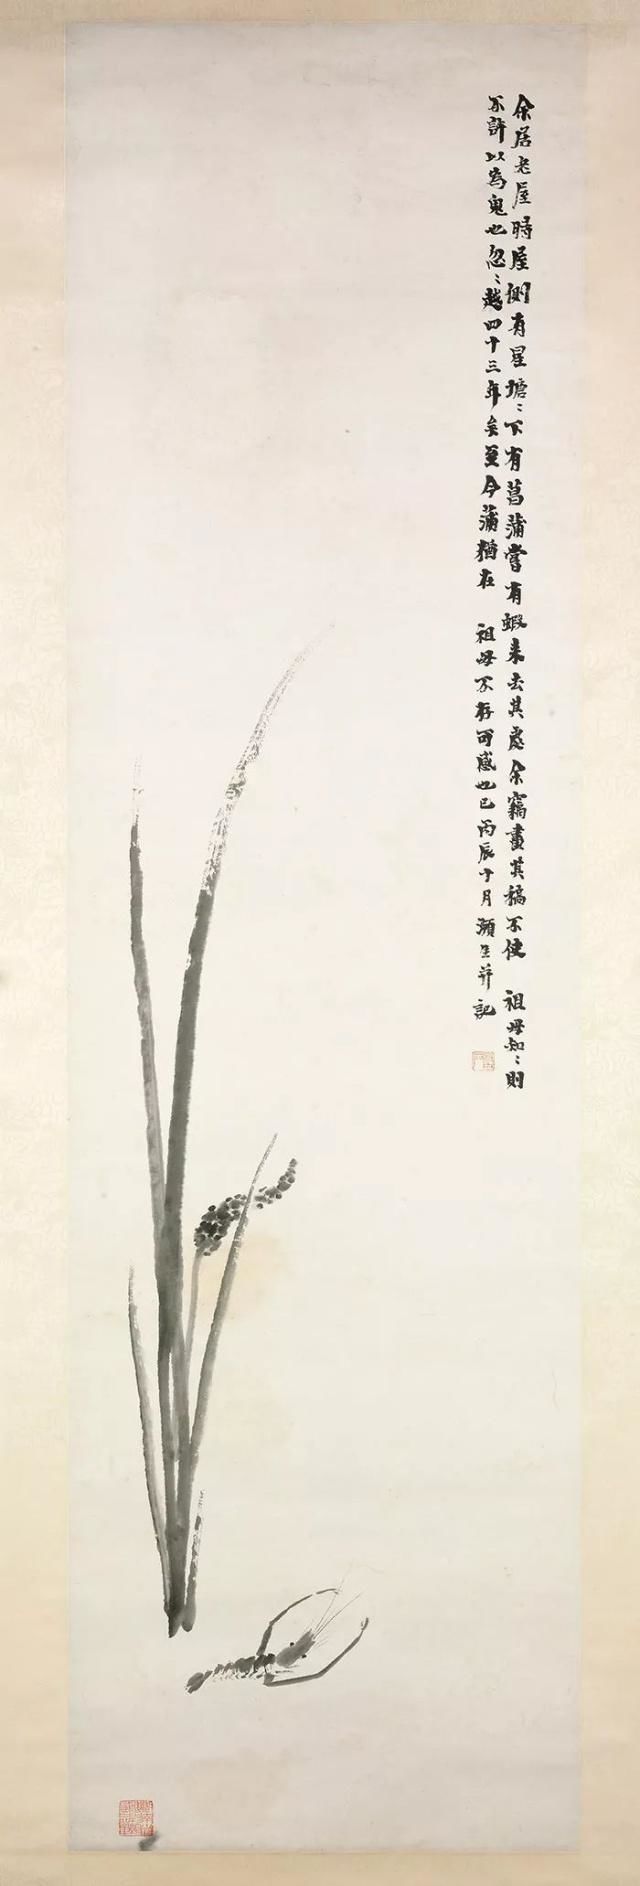 余居老屋時屋側有星塘〻下有菖蒲嘗有蝦来去其處余竊畫其稿不使 祖母知〻則
不許以為鬼也忽〻越四十三年矣至今蒲猶在 祖母不存可感也已丙辰十月瀕生并記